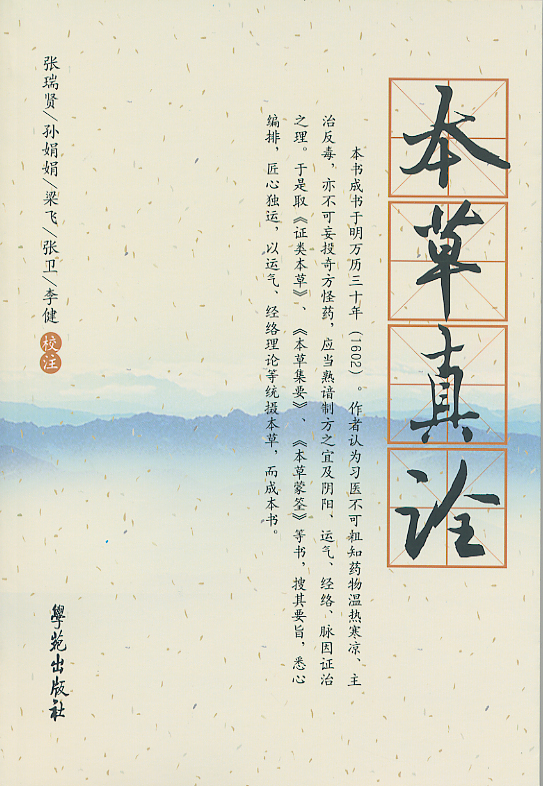 本草真诠
本书成书于明万历三十年（1602）。作者认为习医不可粗知药物温热寒凉、主
治反毒，亦不可妄投奇方怪药，应当熟谙制方之宜及阴阳、运气、经络、脉因证治
之理。于是取《证类本草》、《本草集要》、《本草蒙筌》等书，搜其要旨，悉心
编排，匠心独运，以运气、经络理论等统摄本草，而成本书。
张瑞贤/孙娟娟/梁飞/张卫/李健 校注
學苑出版社